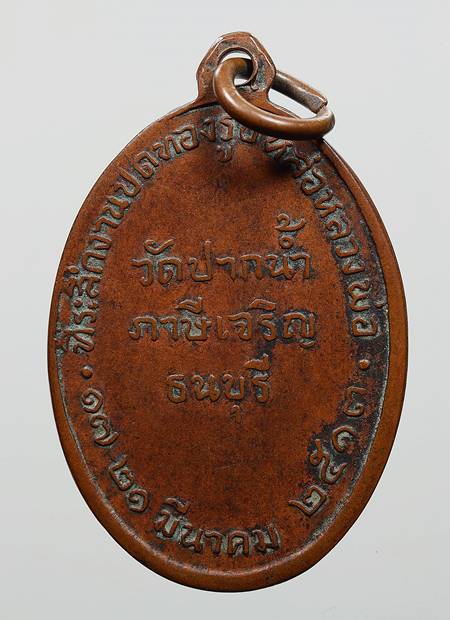 ที่ระลึกงานปิดทองรูปหล่อหลวงพ่อ
วัดปากน้ำ
ภาษีเจริญ
ธนบุรี
๑๗ ๒๑ มีนาคม ๒๕๑๓